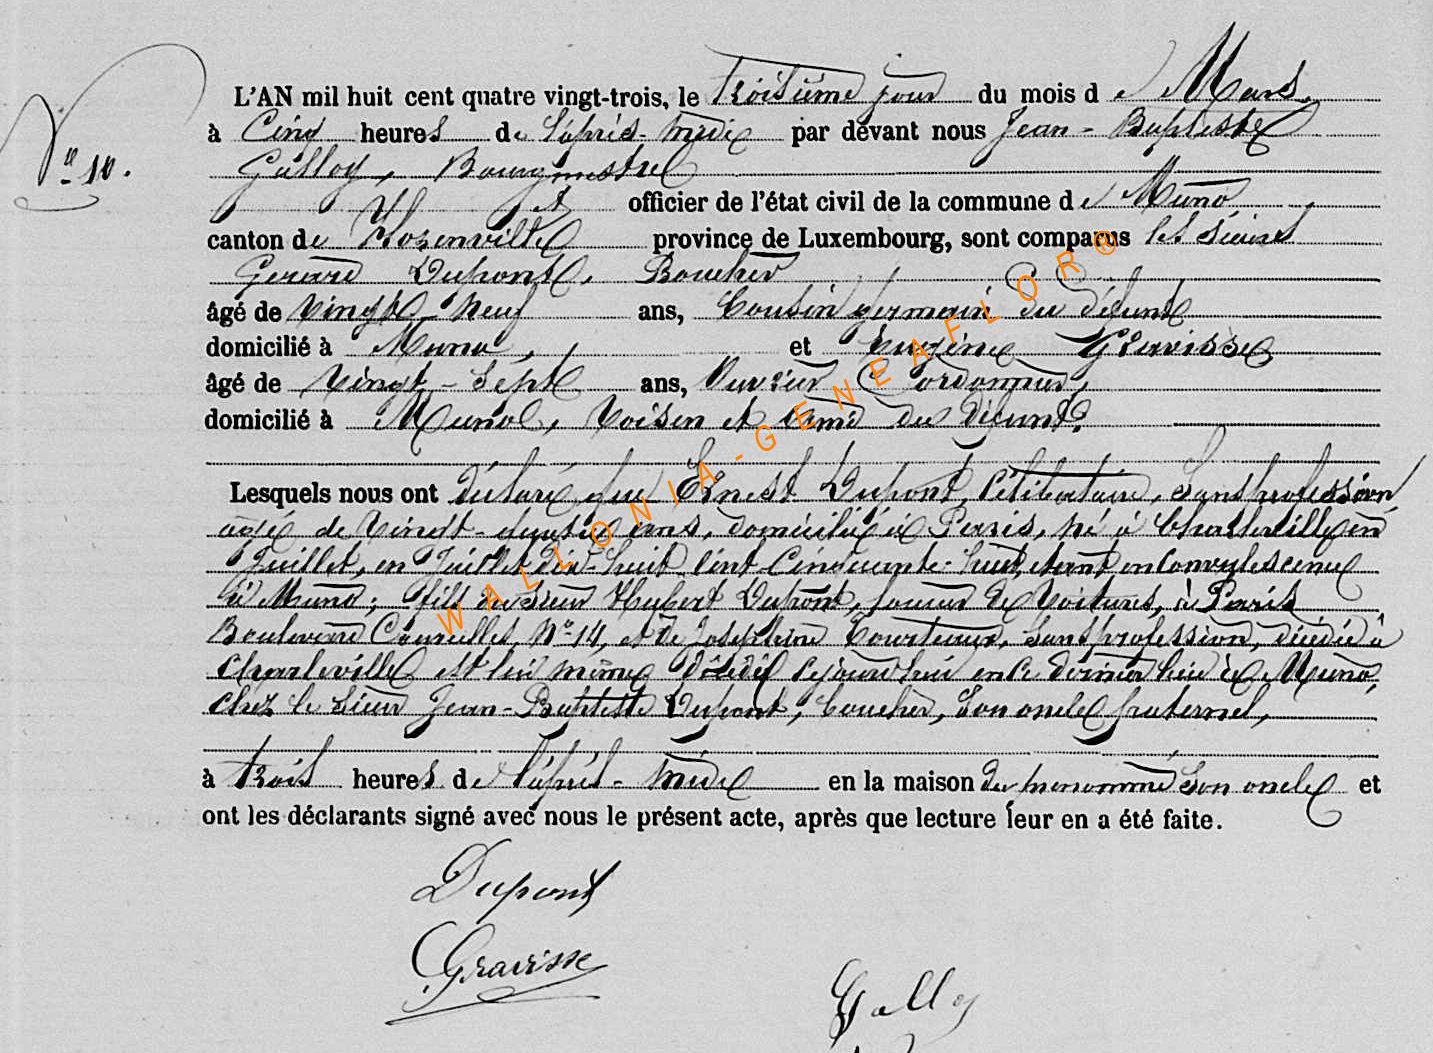 N° 10.
L'AN mil huit cent quatre vingt-trois, le troisième jour du mois de Mars,
à Cinq heures de l'après-midi par devant nous Jean-Baptiste
Galloy, Bourgmestre
et officier de l'état civil de la commune de Muno
canton de province de Luxembourg, sont comparus les sieurs
Gerard Dupont, Boucher
âgé de vingt-neuf ans, Cousin germain du défunt
domicilié à Muno, et Eugène Gravisse
âgé de vingt-sept ans, Ouvrier Cordonnier,
domicilié à Muno, Voisin et ami du défunt.
Lesquels nous ont déclaré que Ernest Dupont, Célibataire, Sans profession
agé de vingt-quatre ans, domicilié à Paris, né à Charleville en
Juillet, en Juillet dix-huit cent cinquante-huit, étant en Convalescence
à Muno, fils du sieur Hubert Dupont, loueur de Voitures, à Paris
Boulevard Courcelles, N° 14, et de Joséphine Courteaux, Sans profession, décédée à
Charleville est lui même décédé cejourd'hui en ce dernier lieu de Muno,
chez le sieur Jean-Baptiste Dupont, boucher, Son oncle paternel,
à trois heures de l'après-midi en la maison du Son oncle et
ont les déclarants signé avec nous le présent acte, après que lecture leur en a été faite.
Dupont
Gravisse
Galloy
WALLONIA-GENEAFLOR®